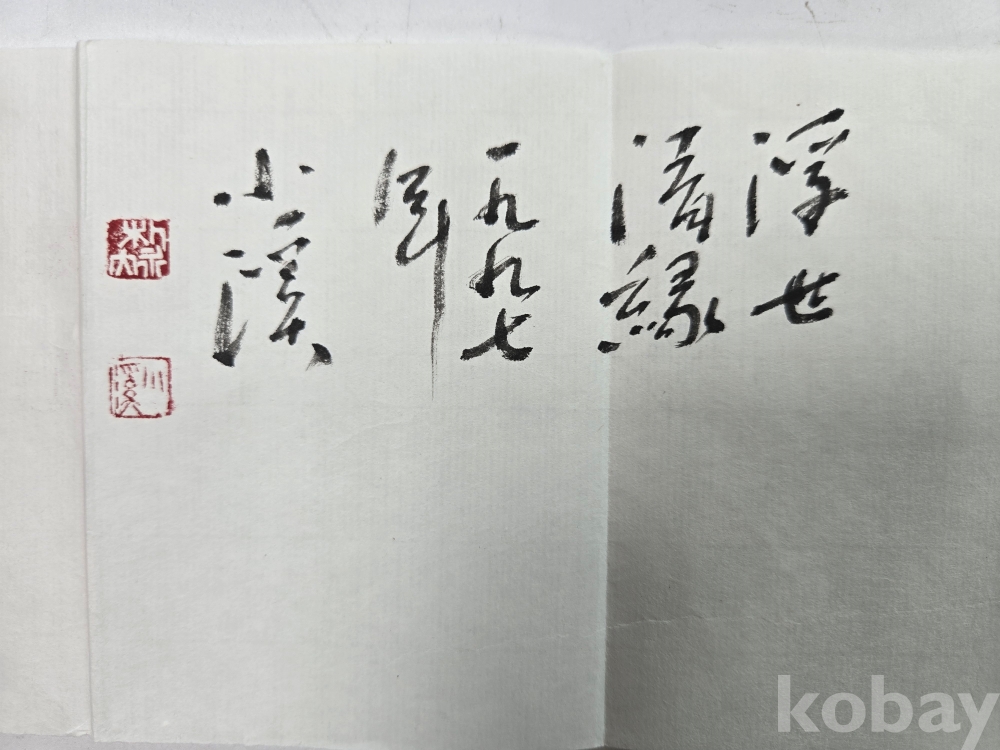 浮世
清緣
一九九七
年
小溪
kobay